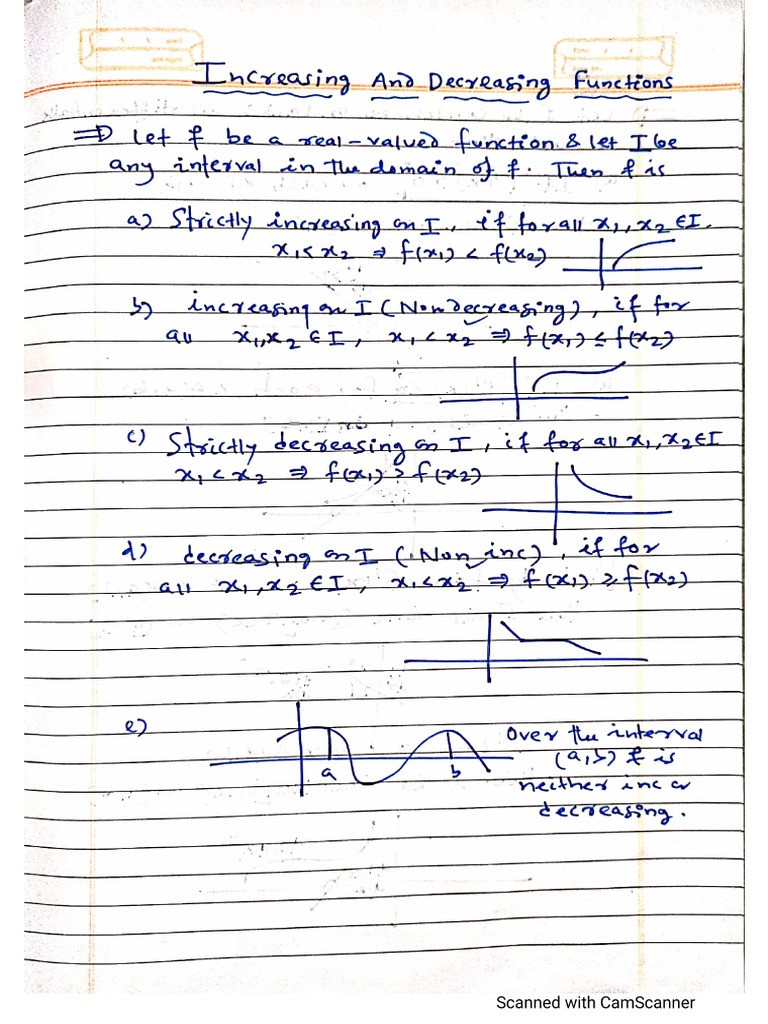 Increasing And Decreasing Functions
⇒ Let f be a real-valued function & let I be
any interval in the domain of f. Then f is
a) Strictly increasing on I, if for all x₁, x₂ ∈ I.
x₁ < x₂ ⇒ f(x₁) < f(x₂)
b) increasing on I (Non decreasing), if for
all x₁, x₂ ∈ I, x₁ < x₂ ⇒ f(x₁) ≤ f(x₂)
c) Strictly decreasing on I, if for all x₁, x₂ ∈ I
x₁ < x₂ ⇒ f(x₁) > f(x₂)
d) decreasing on I (Non inc), if for
all x₁, x₂ ∈ I, x₁ < x₂ ⇒ f(x₁) ≥ f(x₂)
e)
a b
Over the interval
(a, b) f is
neither inc or
decreasing.
Scanned with CamScanner